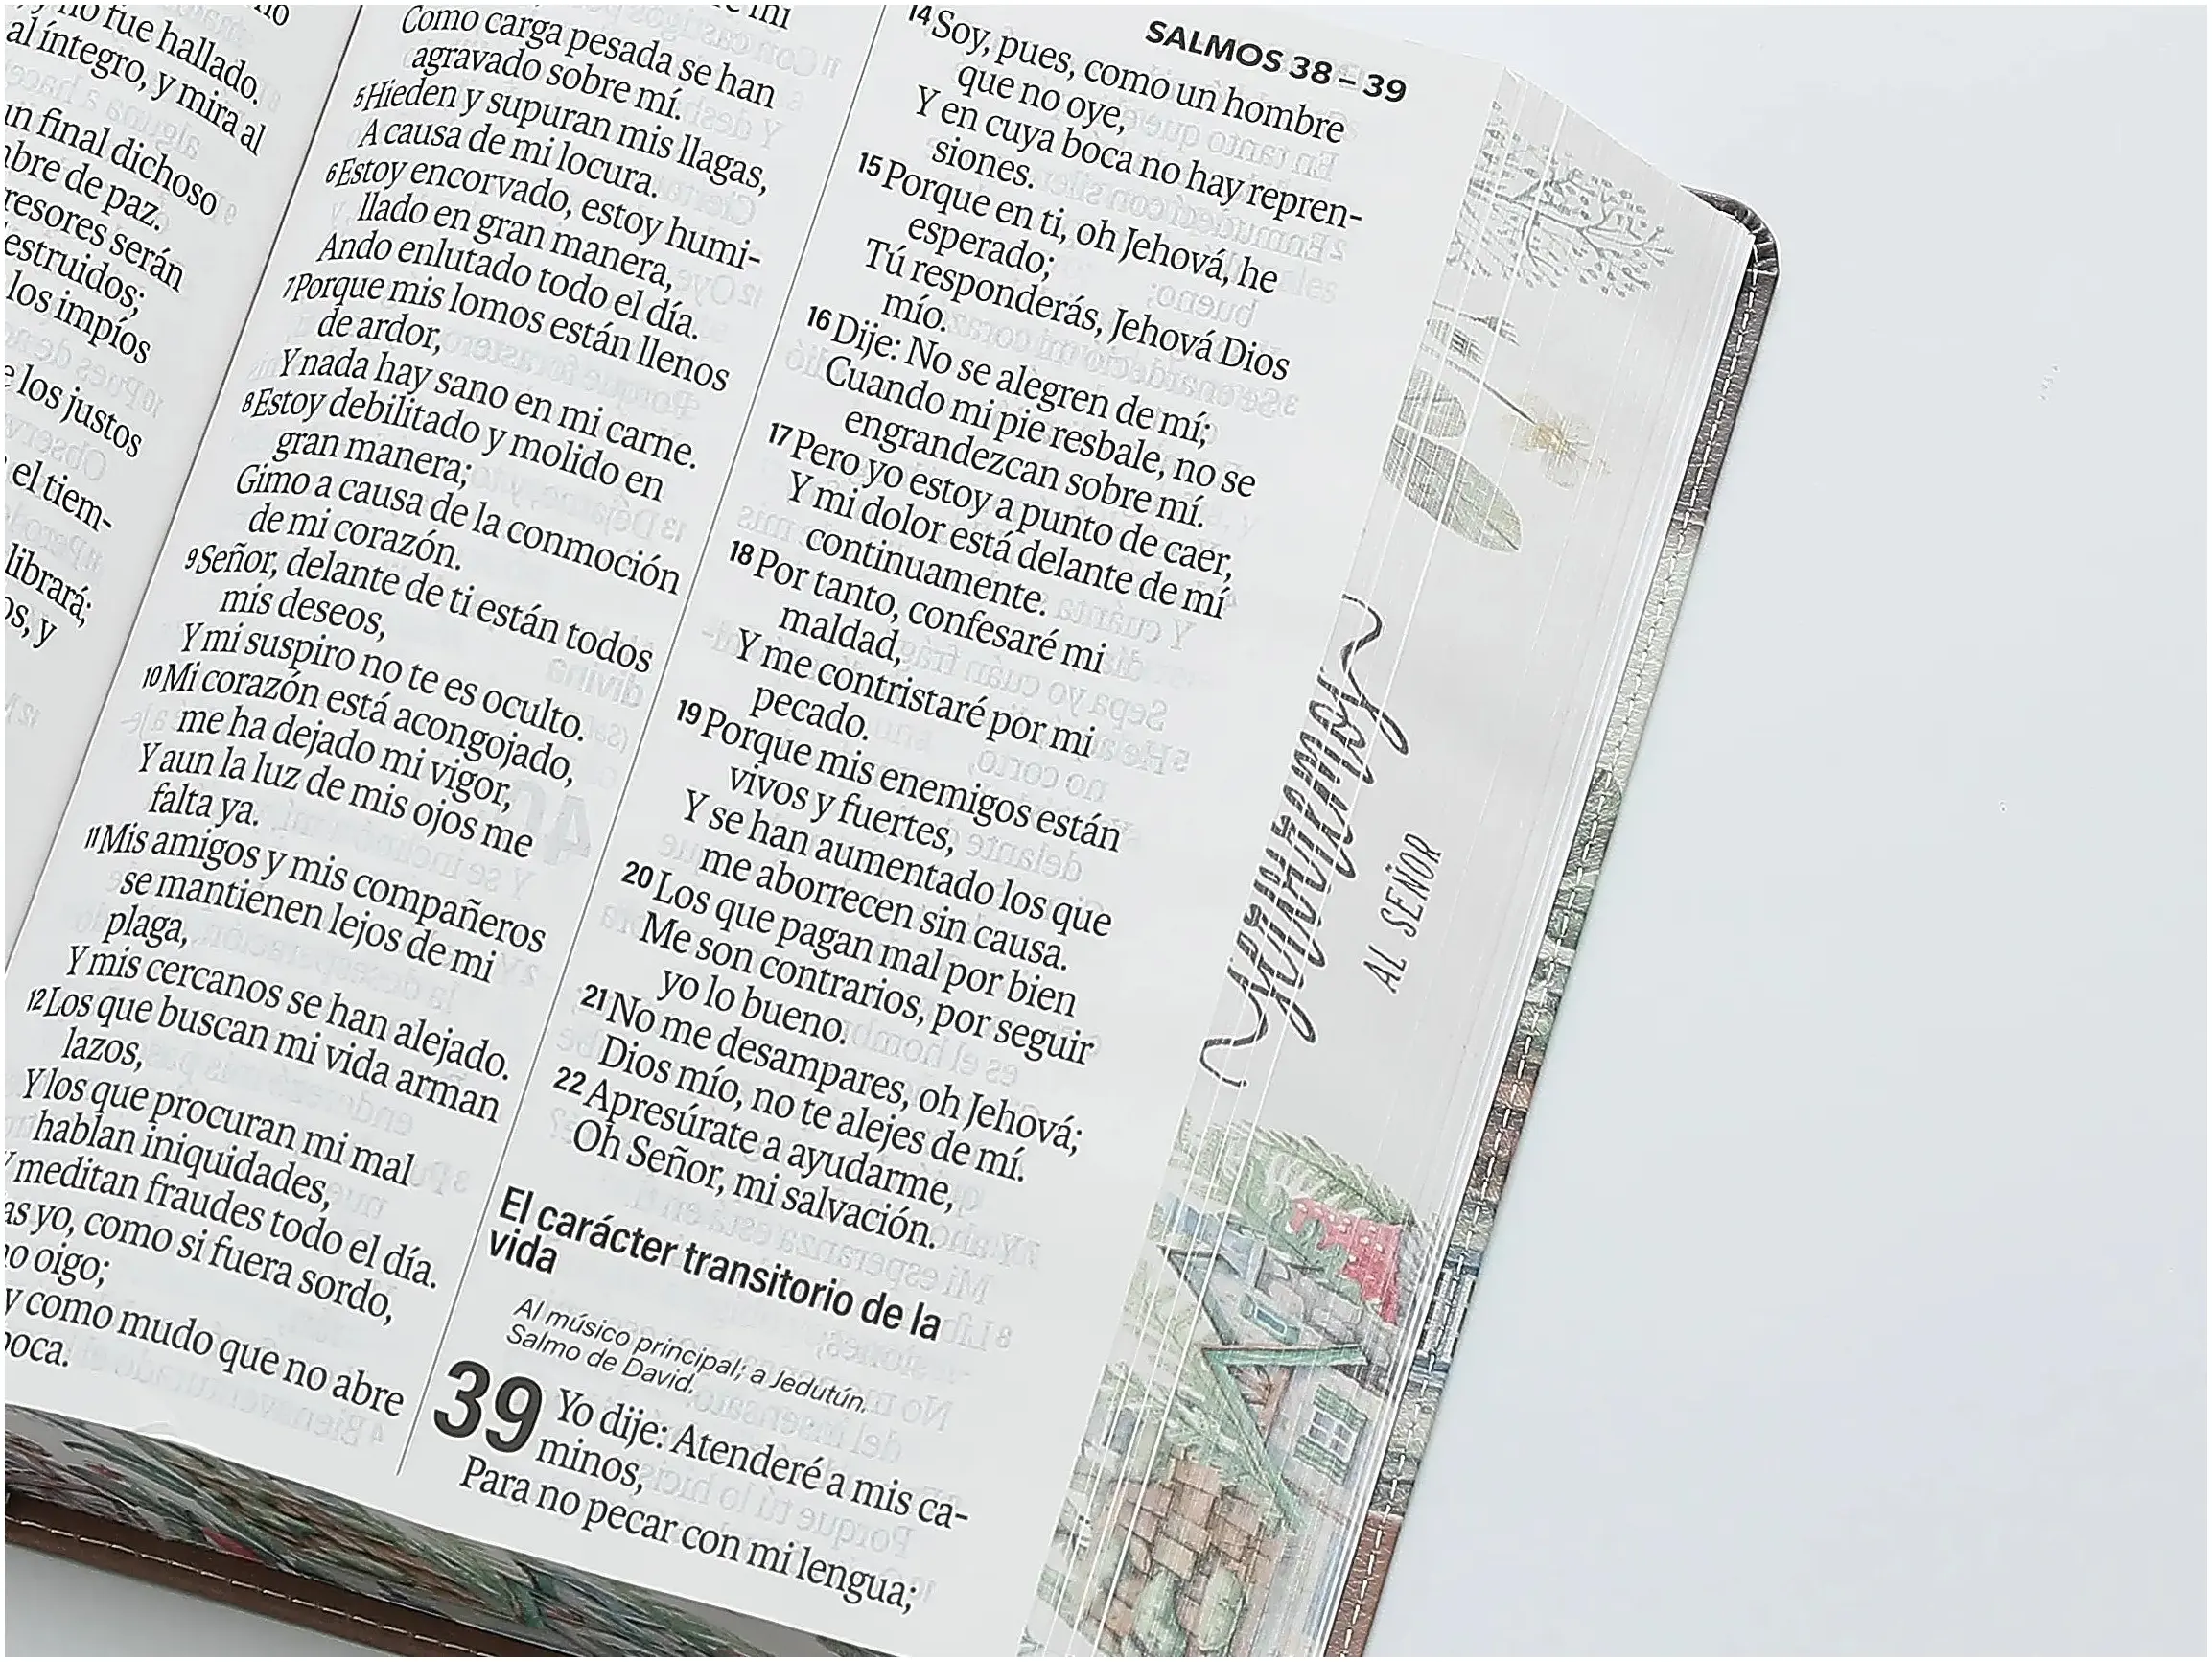 no fue hallado.
al íntegro, y mira al
un final dichoso
de paz.
serán
los impíos
los justos
el tiem-
librará;
y
Como carga pesada se han
agravado sobre mí.
5 Hieden y supuran mis llagas,
A causa de mi locura.
6 Estoy encorvado, estoy humi-
llado en gran manera,
Ando enlutado todo el día.
7 Porque mis lomos están llenos
de ardor,
Y nada hay sano en mi carne.
8 Estoy debilitado y molido en
gran manera;
Gimo a causa de la conmoción
de mi corazón.
9 Señor, delante de ti están todos
mis deseos,
Y mi suspiro no te es oculto.
10 Mi corazón está acongojado,
me ha dejado mi vigor,
Y aun la luz de mis ojos me
falta ya.
11 Mis amigos y mis compañeros
se mantienen lejos de mi
plaga,
Y mis cercanos se han alejado.
12 Los que buscan mi vida arman
lazos,
Y los que procuran mi mal
hablan iniquidades,
Y meditan fraudes todo el día.
yo, como si fuera sordo,
no oigo;
y como mudo que no abre
boca.
SALMOS 38 – 39
14 Soy, pues, como un hombre
que no oye,
Y en cuya boca no hay repren-
siones.
15 Porque en ti, oh Jehová, he
esperado;
Tú responderás, Jehová Dios
mío.
16 Dije: No se alegren de mí;
Cuando mi pie resbale, no se
engrandezcan sobre mí.
17 Pero yo estoy a punto de caer,
Y mi dolor está delante de mí
continuamente.
18 Por tanto, confesaré mi
maldad,
Y me contristaré por mi
pecado.
19 Porque mis enemigos están
vivos y fuertes,
Y se han aumentado los que
me aborrecen sin causa.
20 Los que pagan mal por bien
Me son contrarios, por seguir
yo lo bueno.
21 No me desampares, oh Jehová;
Dios mío, no te alejes de mí.
22 Apresúrate a ayudarme,
Oh Señor, mi salvación.
El carácter transitorio de la
vida
Al músico principal; a Jedutún.
Salmo de David.
39 Yo dije: Atenderé a mis ca-
minos,
Para no pecar con mi lengua;
Serviremos
AL SEÑOR